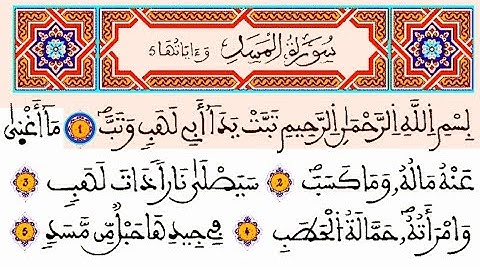 سُورَةُ المَسَدِ وَءَايَاتُهَا 5
بِسْمِ اِللَّهِ اِلرَّحْمَٰنِ اِلرَّحِيمِ تَبَّتْ يَدَآ أَبِي لَهَبٍ وَتَبَّۖ 1 مَآ أَغْنَىٰ
عَنْهُ مَالُهُۥ وَمَا كَسَبَۖ 2 سَيَصْلَىٰ نَاراً ذَاتَ لَهَبٍ 3
وَامْرَأَتُهُۥۖ حَمَّالَةُ اُلْحَطَبِ 4 فِي جِيدِهَا حَبْلٌ مِّن مَّسَدٍ 5